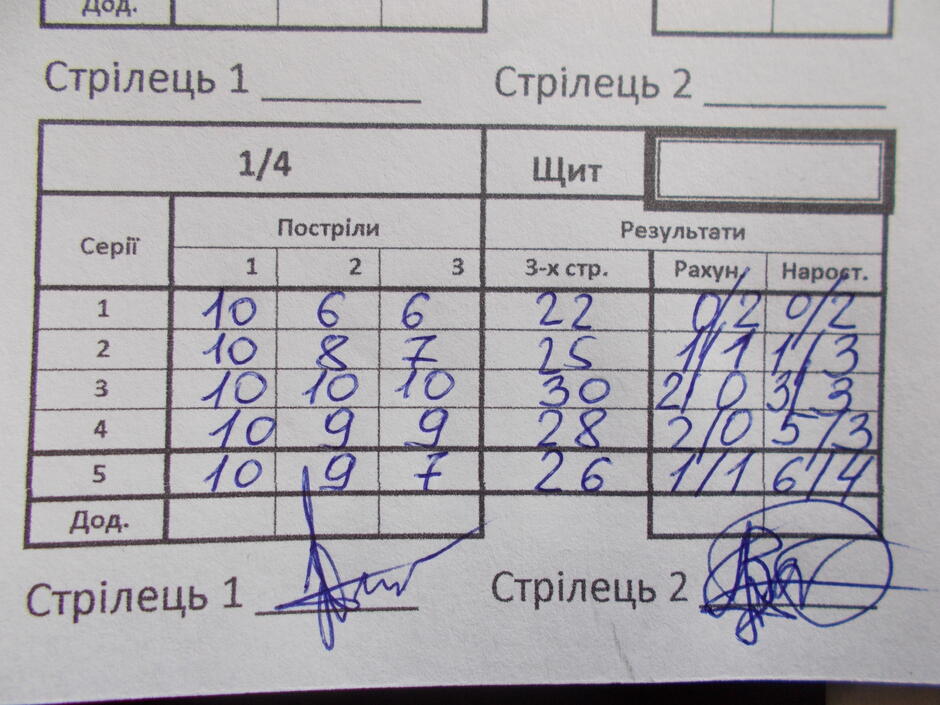 Дод.
Стрілець 1 Стрілець 2
1/4 Щит
Серії Постріли Результати
1 2 3 3-х стр. Рахун. Нарост.
1 10 6 6 22 0/2 0/2
2 10 8 7 25 1/1 1/3
3 10 10 10 30 2/0 3/3
4 10 9 9 28 2/0 5/3
5 10 9 7 26 1/1 6/4
Дод.
Стрілець 1 Стрілець 2